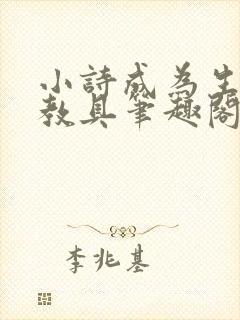 小詩成為生
教具筆趣閣
李兆基